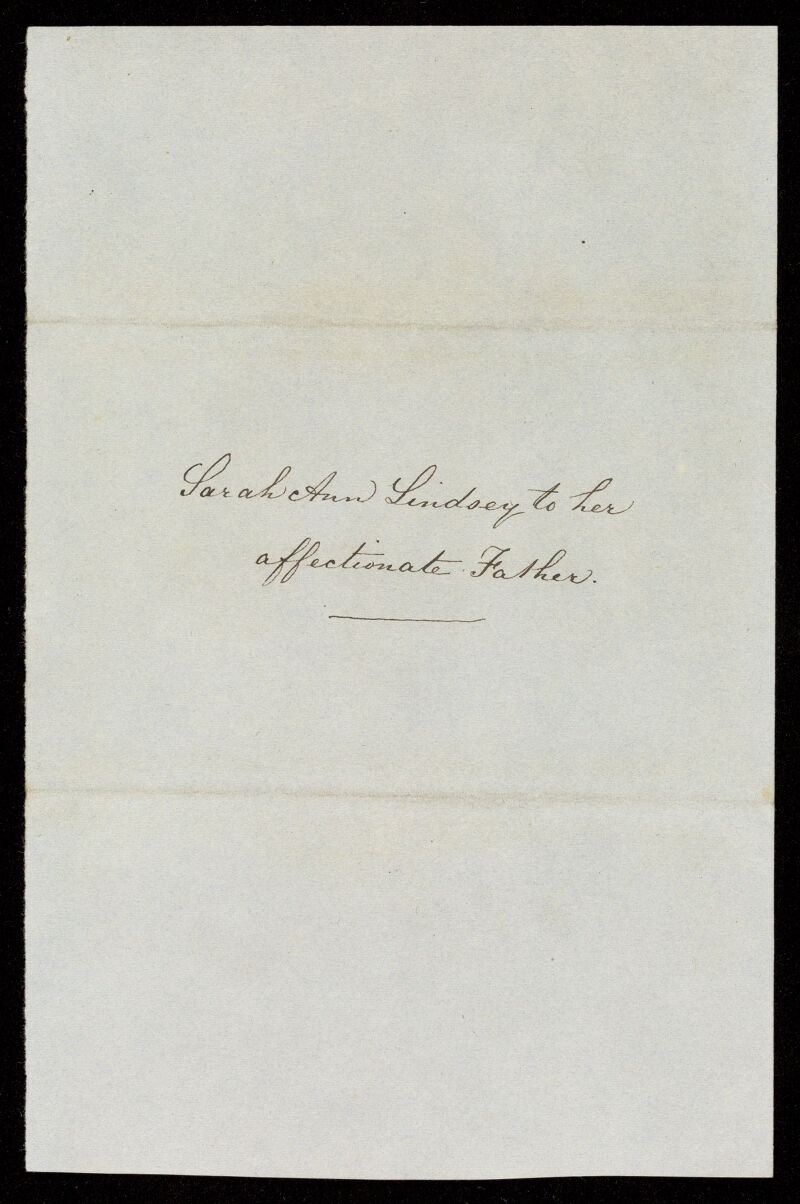 Sarah Ann Lindsey to her
affectionate Father.